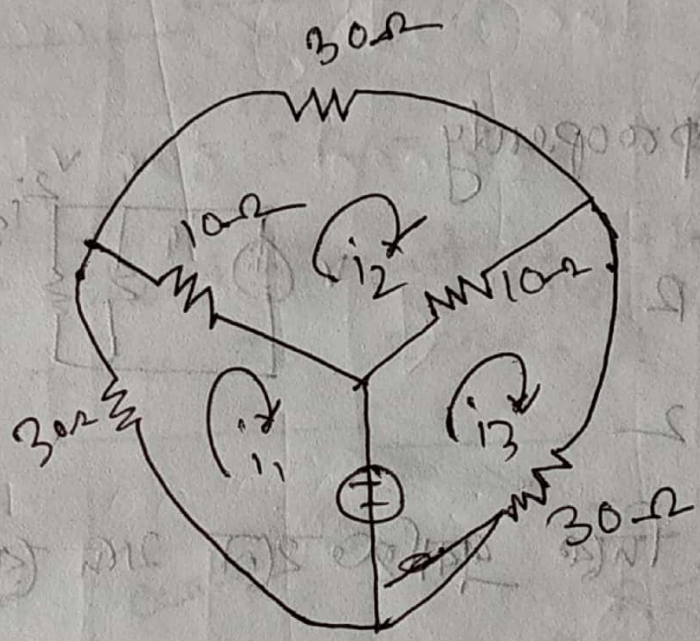 30Ω
10Ω
i2
10Ω
30Ω
i1
i3
30Ω